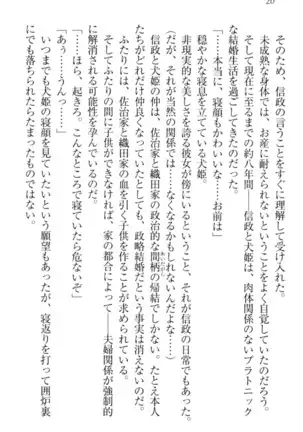 20
そのため、信政の言うことをすぐに理解して受け入れた。
未成熟な身体では、お産に耐えられないということをよく自覚していたのだろう。
そして現在に至るまでの約八年間――信政と犬姫は、肉体関係のないプラトニック
な結婚生活を過ごしてきたのだった。
「……本当に、寝顔もかわいいな……お前は」
穏やかな寝息を立てている犬姫。
非現実的な美しさを誇る彼女が傍にいるということ、それが信政の日常でもあった。
（だが、それが当然の関係では……なくなるかもしれないんだよな……）
信政と犬姫の間柄は、佐治家と織田家の政治的な間柄の帰結でしかない。たとえ本人
たちがどれだけ仲良くなっていても、政略結婚だという事実は消えない。
ふたりには、佐治家と織田家の血を引く子供を作ることが求められている。
そしてふたりの間に子供ができなければ、家の都合によって――夫婦関係が強制的
に解消される可能性を孕んでいるのだ。
「……ほら、起きろ。こんなところで寝ていたら危ないぞ」
「あぅ……うんっ……」
いつまでも犬姫の寝顔を見ていたいという願望もあったが、寝返りを打って囲炉裏
にでも落ちられたらたまったものではない。